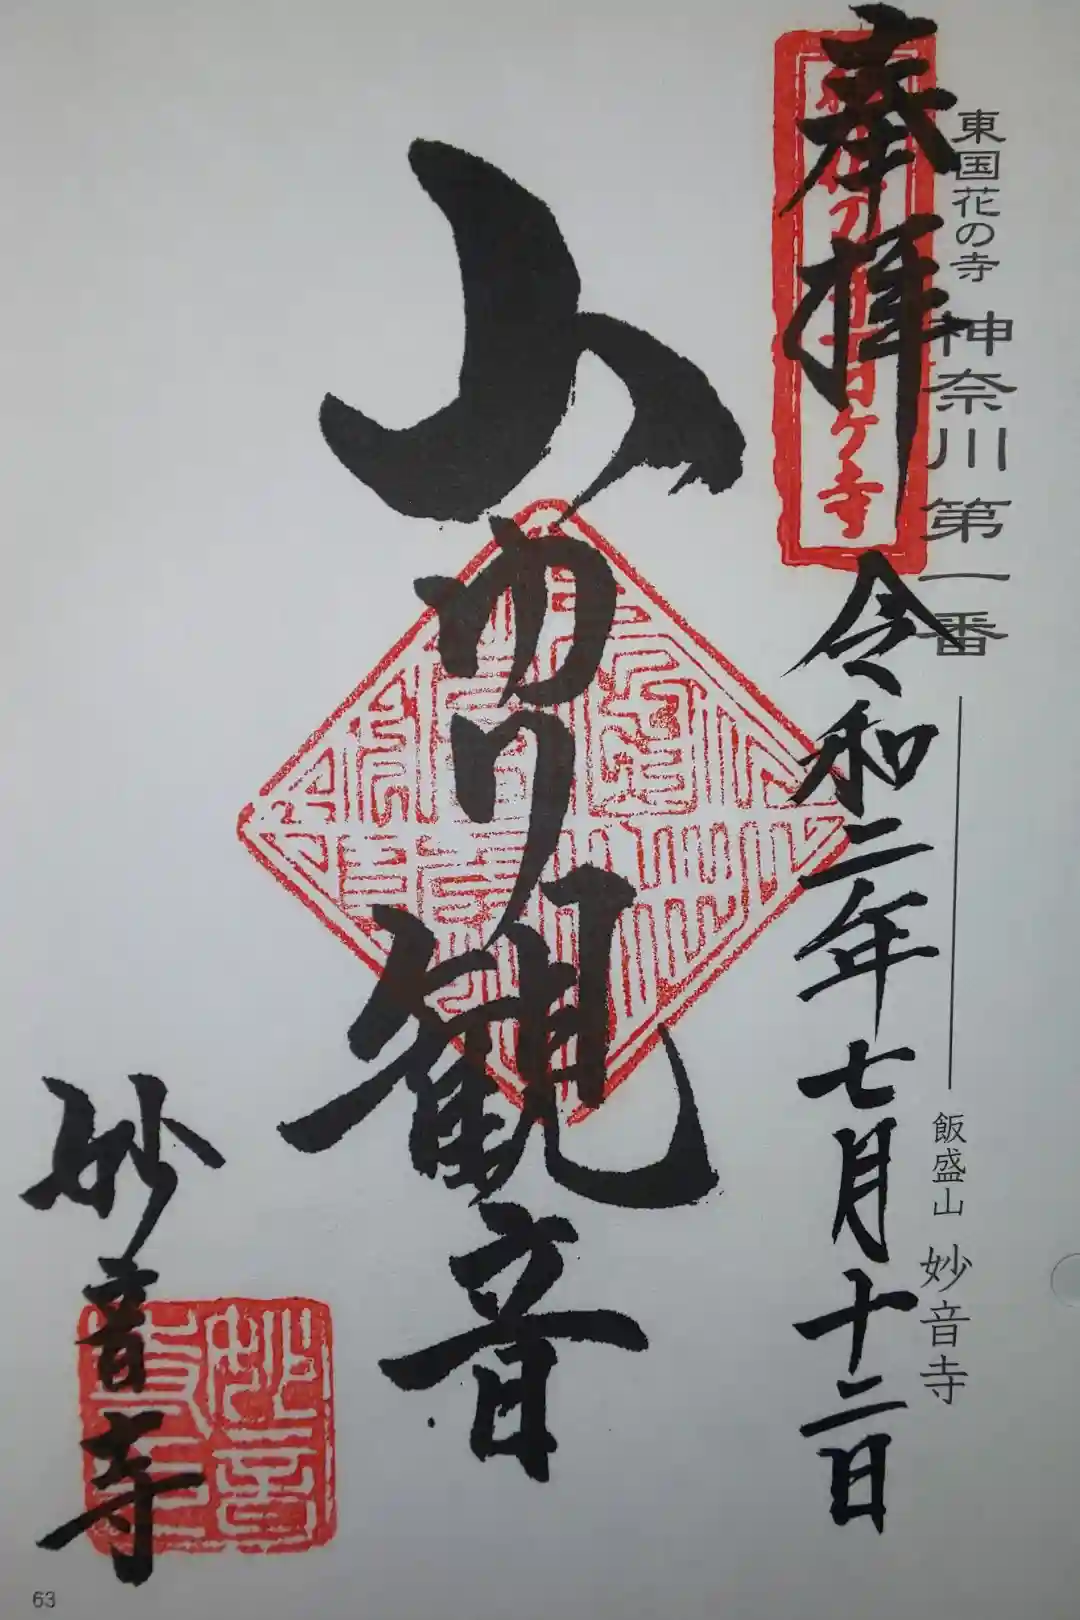 東国花の寺 神奈川第一番 飯盛山 妙音寺
奉拝 令和二年七月十二日
ヶ寺
山ゆり観音
妙音寺
妙音寺
63